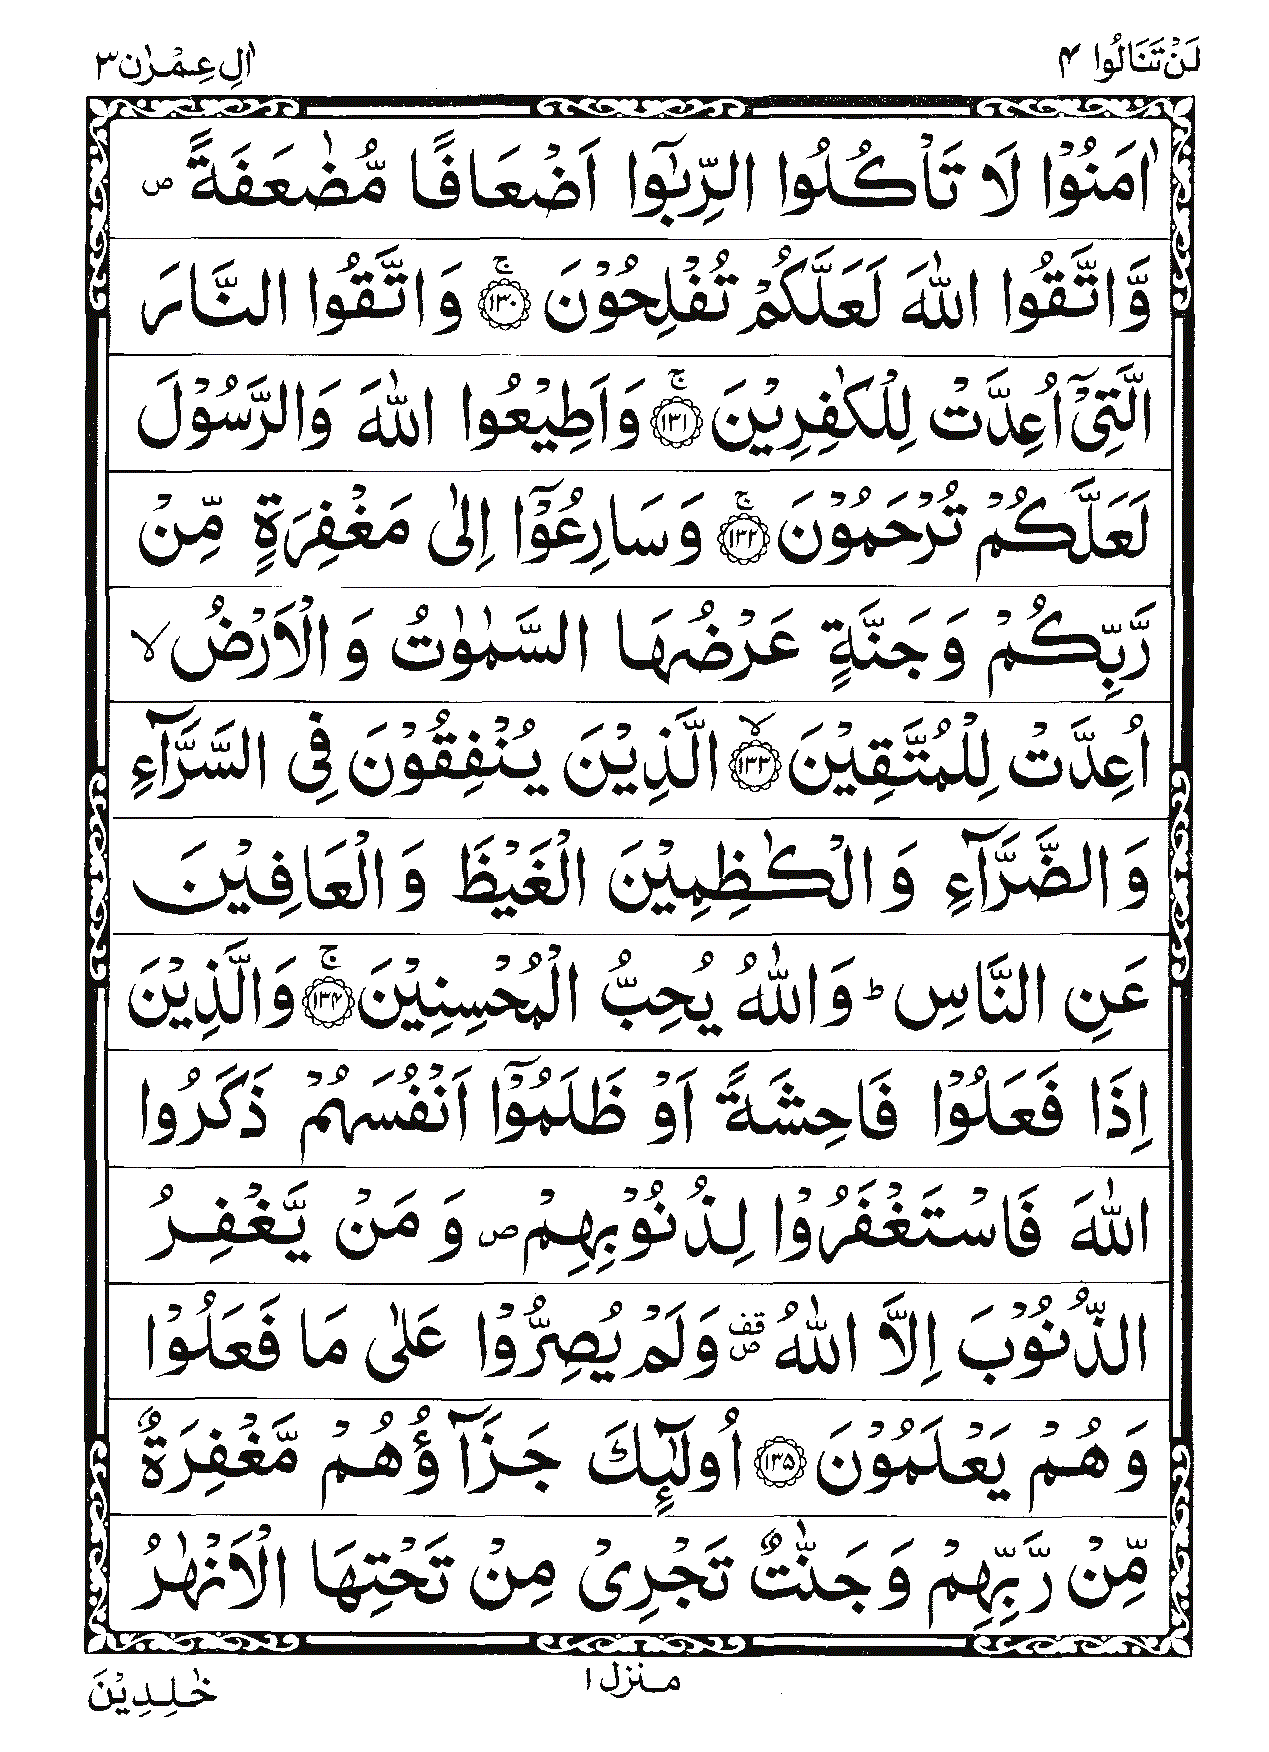 لَنْ تَنَالُوا ۴
اٰلِ عِمْرٰن ۳
اٰمَنُوْا لَا تَاْكُلُوا الرِّبٰٓوا اَضْعَافًا مُّضٰعَفَةً ۪
وَّاتَّقُوا اللّٰهَ لَعَلَّكُمْ تُفْلِحُوْنَ ۚ﴿۱۳۰﴾ وَاتَّقُوا النَّارَ
الَّتِیْۤ اُعِدَّتْ لِلْكٰفِرِیْنَ ۚ﴿۱۳۱﴾ وَاَطِیْعُوا اللّٰهَ وَالرَّسُوْلَ
لَعَلَّكُمْ تُرْحَمُوْنَ ۚ﴿۱۳۲﴾ وَسَارِعُوْۤا اِلٰى مَغْفِرَةٍ مِّنْ
رَّبِّكُمْ وَجَنَّةٍ عَرْضُهَا السَّمٰوٰتُ وَالْاَرْضُ ۙ
اُعِدَّتْ لِلْمُتَّقِیْنَ ۙ﴿۱۳۳﴾ الَّذِیْنَ یُنْفِقُوْنَ فِی السَّرَّآءِ
وَالضَّرَّآءِ وَالْكٰظِمِیْنَ الْغَیْظَ وَالْعَافِیْنَ
عَنِ النَّاسِ ؕ وَاللّٰهُ یُحِبُّ الْمُحْسِنِیْنَ ۚ﴿۱۳۴﴾ وَالَّذِیْنَ
اِذَا فَعَلُوْا فَاحِشَةً اَوْ ظَلَمُوْۤا اَنْفُسَهُمْ ذَكَرُوا
اللّٰهَ فَاسْتَغْفَرُوْا لِذُنُوْبِهِمْ ۪ وَمَنْ یَّغْفِرُ
الذُّنُوْبَ اِلَّا اللّٰهُ ۪۫ وَلَمْ یُصِرُّوْا عَلٰى مَا فَعَلُوْا
وَهُمْ یَعْلَمُوْنَ ﴿۱۳۵﴾ اُولٰٓىِٕكَ جَزَآؤُهُمْ مَّغْفِرَةٌ
مِّنْ رَّبِّهِمْ وَجَنّٰتٌ تَجْرِیْ مِنْ تَحْتِهَا الْاَنْهٰرُ
منزل ۱
خٰلِدِیْنَ